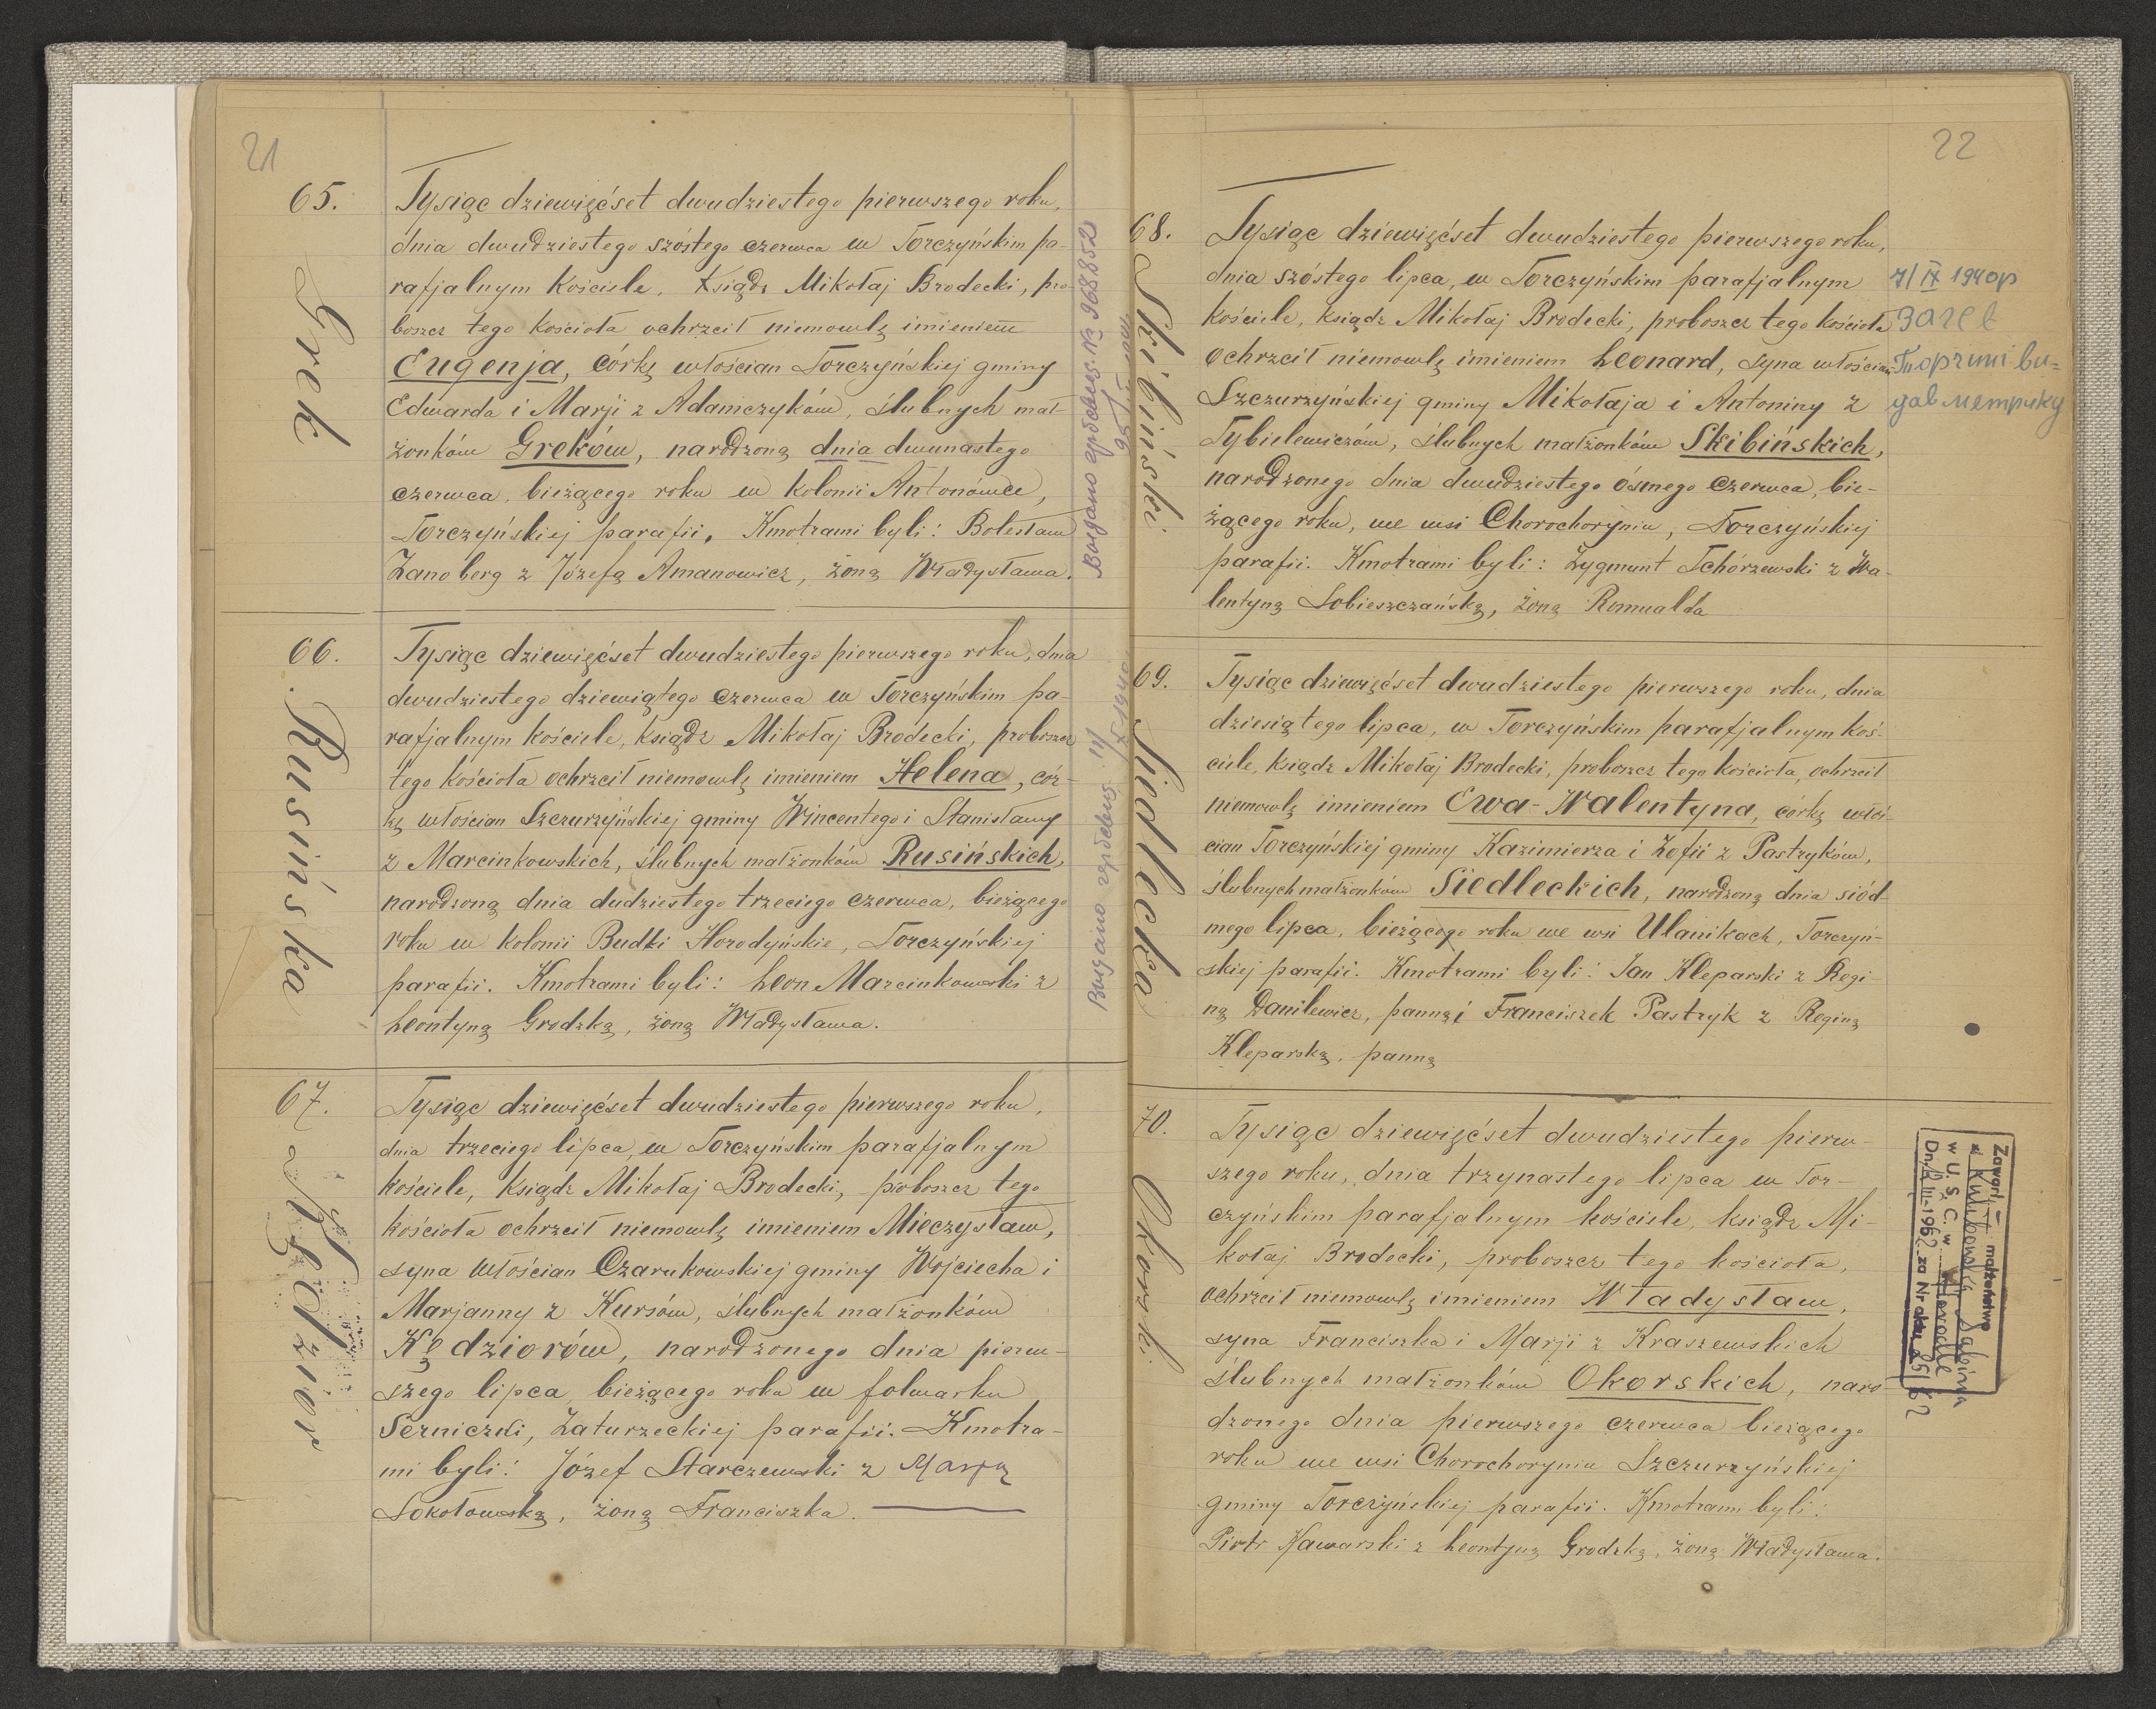 21
65.
Grek
Tysiąc dziewięćset dwudziestego pierwszego roku,
dnia dwudziestego szóstego czerwca w Torczyńskim pa-
rafjalnym kościele, Ksiądz Mikołaj Brodecki, pro-
boszcz tego kościoła ochrzcił niemowlę imieniem
Eugenja, córkę włościan Torczyńskiej gminy
Edwarda i Marji z Adamczyków, ślubnych mał-
żonków Greków, narodzoną dnia dwunastego
czerwca, bieżącego roku w kolonii Antonówce,
Torczyńskiej parafii. Kmotrami byli: Bolesław
Zanoberg z Józefą Amanowicz, żoną Władysława.
№ 968852
66.
Rusińska
Tysiąc dziewięćset dwudziestego pierwszego roku, dnia
dwudziestego dziewiątego czerwca w Torczyńskim pa-
rafjalnym kościele, ksiądz Mikołaj Brodecki, proboszcz
tego kościoła ochrzcił niemowlę imieniem Helena, cór-
kę włościan Szczurzyńskiej gminy Wincentego i Stanisławy
z Marcinkowskich, ślubnych małżonków Rusińskich,
narodzoną dnia dudziestego trzeciego czerwca, bieżącego
roku w kolonii Budki Horodyńskie, Torczyńskiej
parafii. Kmotrami byli: Leon Marcinkowski z
Leontyną Grodzką, żoną Władysława.
67.
Kędzior
Tysiąc dziewięćset dwudziestego pierwszego roku,
dnia trzeciego lipca, w Torczyńskim parafjalnym
kościele, Ksiądz Mikołaj Brodecki, proboszcz tego
kościoła ochrzcił niemowlę imieniem Mieczysław,
syna włościan Czarukowskiej gminy Wojciecha i
Marjanny z Kursów, ślubnych małżonków
Kędziorów, narodzonego dnia pierw-
szego lipca, bieżącego roku w folwarku
Serniczki, Zaturzeckiej parafii. Kmotra-
mi byli: Józef Starczewski z Marją
Sokołowską, żoną Franciszka.
22
68.
Skibiński
Tysiąc dziewięćset dwudziestego pierwszego roku,
dnia szóstego lipca, w Torczyńskim parafjalnym
kościele, ksiądz Mikołaj Brodecki, proboszcz tego kościoła
ochrzcił niemowlę imieniem Leonard, syna włościan
Szczurzyńskiej gminy Mikołaja i Antoniny z
Tybulewiczów, ślubnych małżonków Skibińskich,
narodzonego dnia dwudziestego ósmego czerwca, bie-
żącego roku, we wsi Chorochoryniu, Torczyńskiej
parafii. Kmotrami byli: Zygmunt Tchórzewski z Wa-
lentyną Sobieszczańską, żoną Romualda
7/IX 1940р
Загс в
Торчині ви-
дав метрику
69.
Siedlecka
Tysiąc dziewięćset dwudziestego pierwszego roku, dnia
dziesiątego lipca, w Torczyńskim parafjalnym koś-
ciele, ksiądz Mikołaj Brodecki, proboszcz tego kościoła, ochrzcił
niemowlę imieniem Ewa-Walentyna, córkę włoś-
cian Torczyńskiej gminy Kazimierza i Zofii z Pastryków,
ślubnych małżonków Siedleckich, narodzoną dnia siód-
mego lipca, bieżącego roku we wsi Ulanikach, Torczyń-
skiej parafii. Kmotrami byli: Jan Kleparski z Regi-
ną Danilewicz, panną i Franciszek Pastryk z Reginą
Kleparską, panną
70.
Okorski
Tysiąc dziewięćset dwudziestego pierw-
szego roku, dnia trzynastego lipca w Tor-
czyńskim parafjalnym kościele, ksiądz Mi-
kołaj Brodecki, proboszcz tego kościoła,
ochrzcił niemowlę imieniem Władysław,
syna Franciszka i Marji z Kraszewskich
ślubnych małżonków Okorskich, naro-
dzonego dnia pierwszego czerwca bieżącego
roku we wsi Chorochoryniu Szczurzyńskiej
gminy Torczyńskiej parafii. Kmotrami byli:
Piotr Kawarski z Leontyną Grodzką, żoną Władysława.
Zawarł małżeństwo
z Sabiną
w U. S. C. w
Dn. III-1962 za Nr aktu 25/62